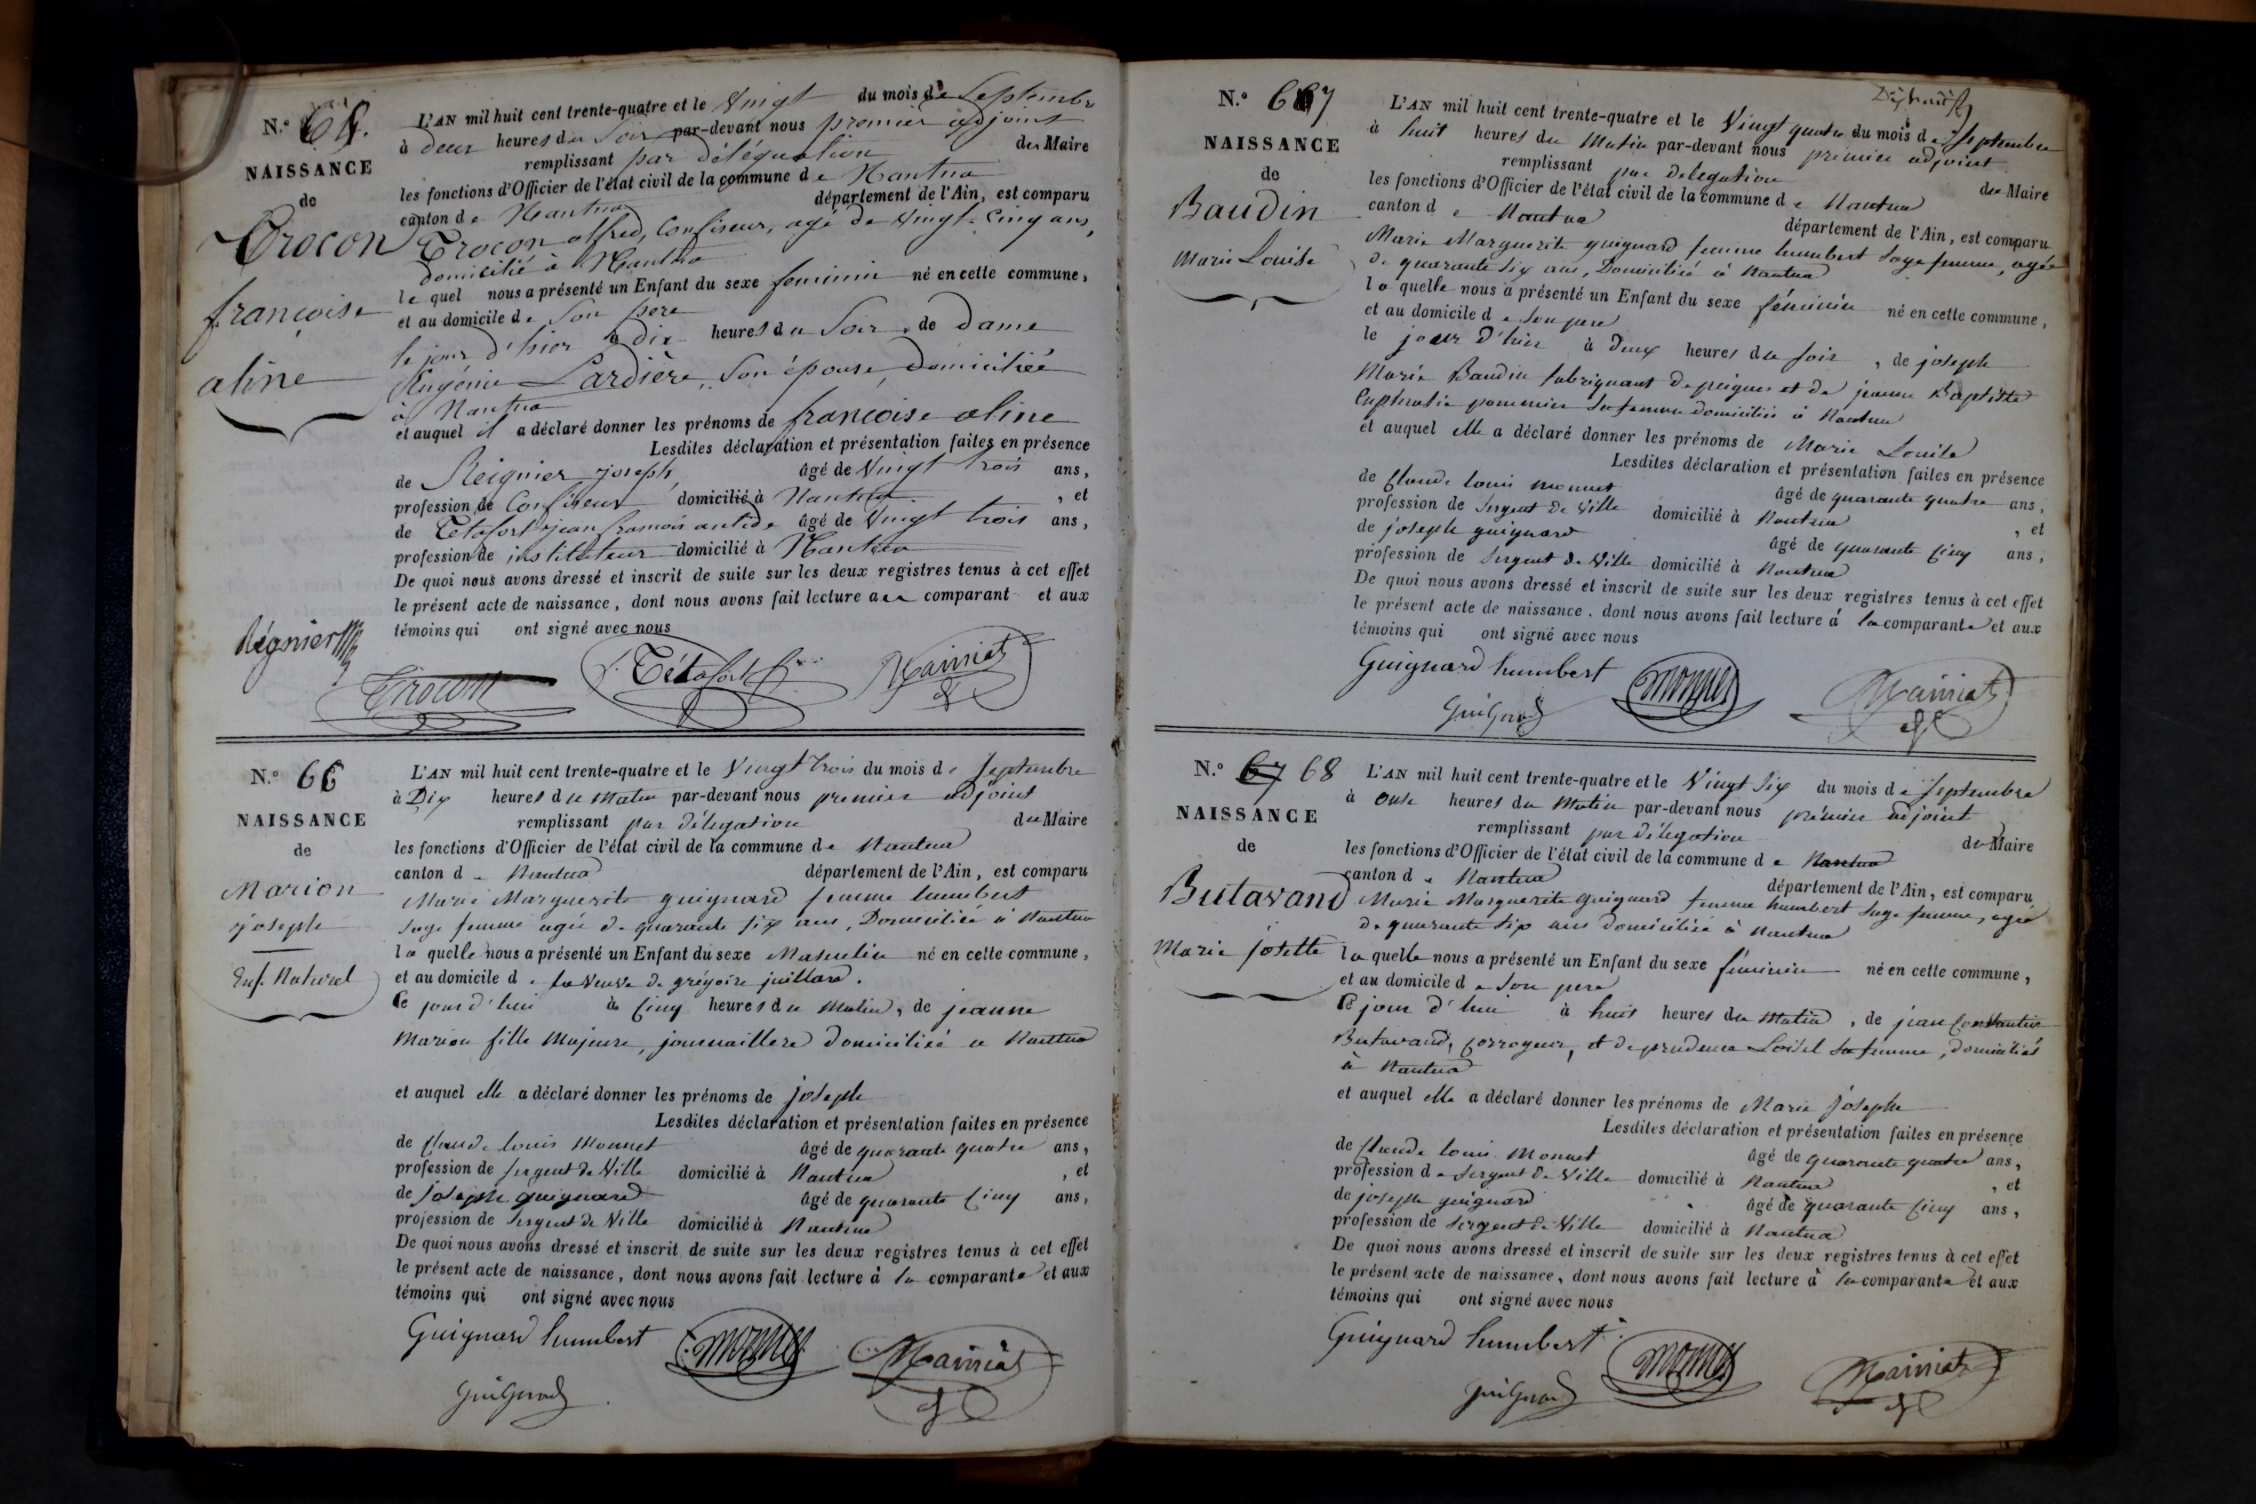 N.º 65.
NAISSANCE
de
Trocon
françoise
aline
L'AN mil huit cent trente-quatre et le Vingt du mois de Septembre
à deux heures du Soir par-devant nous premier adjoint
remplissant par délégation du Maire
les fonctions d'Officier de l'état civil de la commune de Nantua
canton de Nantua département de l'Ain, est comparu
Trocon alfred, Confiseur, agé de Vingt-Cinq ans,
domicilié à Nantua
le quel nous a présenté un Enfant du sexe feminin né en cette commune,
et au domicile de Son père
le jour d'hier à dix heures du Soir, de dame
Eugénie Lardière, Son épouse, domiciliée
à Nantua
et auquel il a déclaré donner les prénoms de françoise aline
Lesdites déclaration et présentation faites en présence
de Reignier joseph, âgé de Vingt trois ans,
profession de Confiseur domicilié à Nantua, et
de Tétafort jean françois antide âgé de Vingt trois ans,
profession de instituteur domicilié à Nantua
De quoi nous avons dressé et inscrit de suite sur les deux registres tenus à cet effet
le présent acte de naissance, dont nous avons fait lecture au comparant et aux
témoins qui ont signé avec nous
Régnier
Trocon Tétafort Mainiat
N.º 66
NAISSANCE
de
Marion
joseph
Enf. Naturel
L'AN mil huit cent trente-quatre et le Vingt trois du mois de Septembre
à Dix heures du Matin par-devant nous premier adjoint
remplissant par délégation du Maire
les fonctions d'Officier de l'état civil de la commune de Nantua
canton de Nantua département de l'Ain, est comparu
Marie Marguerite guignard femme humbert
Sage femme agée de quarante six ans, Domiciliée à Nantua
la quelle nous a présenté un Enfant du sexe Masculin né en cette commune,
et au domicile de la Veuve de grégoire juillard.
Ce jour d'hui à Cinq heures du Matin, de jeanne
Marion fille Majeure, journaillere domiciliée à Nantua
et auquel elle a déclaré donner les prénoms de joseph
Lesdites déclaration et présentation faites en présence
de Claude louis Monnet âgé de quarante quatre ans,
profession de Sergent de Ville domicilié à Nantua, et
de joseph guignard âgé de quarante Cinq ans,
profession de Sergent de Ville domicilié à Nantua
De quoi nous avons dressé et inscrit de suite sur les deux registres tenus à cet effet
le présent acte de naissance, dont nous avons fait lecture à la comparante et aux
témoins qui ont signé avec nous
Guignard humbert monnet Mainiat
GuiGnard
N.º 67
NAISSANCE
de
Baudin
Marie Louise
L'AN mil huit cent trente-quatre et le Vingt quatre du mois de Septembre
à huit heures du Matin par-devant nous premier adjoint
remplissant par délégation du Maire
les fonctions d'Officier de l'état civil de la commune de Nantua
canton de Nantua département de l'Ain, est comparu
Marie Marguerite guignard femme humbert Sage femme, agée
de quarante Six ans, Domiciliée à Nantua
la quelle nous a présenté un Enfant du sexe féminin né en cette commune,
et au domicile de Son pere
le jour d'hier à Deux heures du Soir, de joseph
Marie Baudin fabriquant de peignes et de jeanne Baptiste
Euphrasie pommier Sa femme domiciliés à Nantua
et auquel elle a déclaré donner les prénoms de Marie Louise
Lesdites déclaration et présentation faites en présence
de Claude louis monnet âgé de quarante quatre ans,
profession de Sergent de Ville domicilié à Nantua, et
de joseph guignard âgé de quarante Cinq ans,
profession de Sergent de Ville domicilié à Nantua
De quoi nous avons dressé et inscrit de suite sur les deux registres tenus à cet effet
le présent acte de naissance, dont nous avons fait lecture à la comparante et aux
témoins qui ont signé avec nous
Guignard humbert monnet Mainiat
GuiGnard
N.º 67 68
NAISSANCE
de
Butavand
Marie josette
L'AN mil huit cent trente-quatre et le Vingt Six du mois de Septembre
à onze heures du Matin par-devant nous prémier adjoint
remplissant par délégation du Maire
les fonctions d'Officier de l'état civil de la commune de Nantua
canton de Nantua département de l'Ain, est comparu
Marie Marguerite guignard femme humbert Sage femme, agée
de quarante Six ans domiciliée à Nantua
la quelle nous a présenté un Enfant du sexe féminin né en cette commune,
et au domicile de Son pere
Ce jour d'hui à huit heures du Matin, de jean Constantin
Butavand, Corroyeur, et de prudence Loisel Sa femme, domiciliés
à Nantua
et auquel elle a déclaré donner les prénoms de Marie josephe
Lesdites déclaration et présentation faites en présence
de Claude louis Monnet âgé de quarante quatre ans,
profession de Sergent de Ville domicilié à Nantua, et
de joseph guignard âgé de quarante Cinq ans,
profession de Sergent de Ville domicilié à Nantua
De quoi nous avons dressé et inscrit de suite sur les deux registres tenus à cet effet
le présent acte de naissance, dont nous avons fait lecture à la comparante et aux
témoins qui ont signé avec nous
Guignard humbert monnet Mainiat
GuiGnard